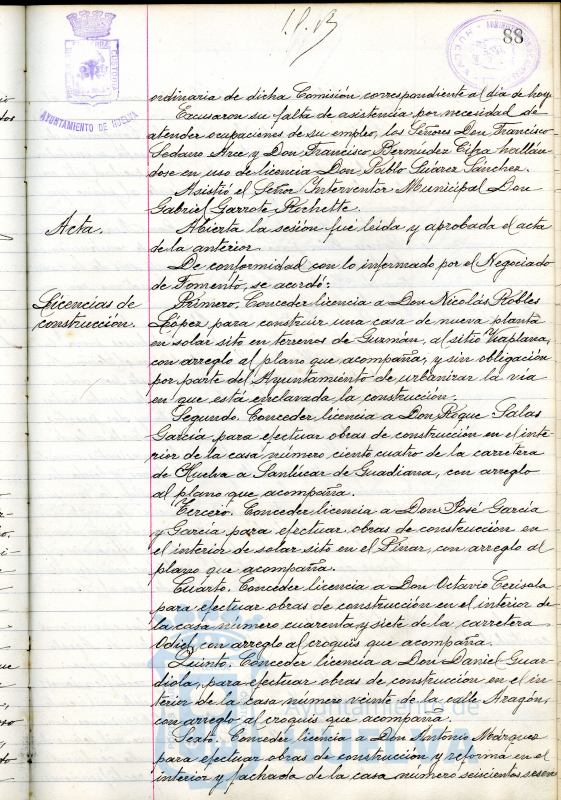 88
AYUNTAMIENTO DE HUELVA
ordinaria de dicha Comisión correspondiente al día de hoy.
Excusaron su falta de asistencia por necesidad de
atender ocupaciones de su empleo, los Señores Don Francisco
Sedano Arce, y Don Francisco Bermudez Cifra hallán-
dose en uso de licencia Don Pablo Suárez Sánchez.
Asistió el Señor Interventor Municipal Don
Gabriel Garrote Rochette.
Acta.
Abierta la sesión fué leida y aprobada el acta
de la anterior.
De conformidad con lo informado por el Negociado
de Fomento, se acordó:
Licencias de
construcción.
Primero. Conceder licencia a Don Nicolás Robles
López para construir una casa de nueva planta
en solar sito en terrenos de Guzmán, al sitio Viaplana,
con arreglo al plano que acompaña, y sin obligación
por parte del Ayuntamiento de urbanizar la vía
en que está enclavada la construcción.
Segundo. Conceder licencia a Don Roque Salas
García para efectuar obras de construcción en el inte-
rior de la casa número ciento cuatro de la carretera
de Huelva a Sanlúcar de Guadiana, con arreglo
al plano que acompaña.
Tercero. Conceder licencia a Don José García
y García para efectuar obras de construcción en
el interior de solar sito en el Pinar, con arreglo al
plano que acompaña.
Cuarto. Conceder licencia a Don Octavio Cerisola
para efectuar obras de construcción en el interior de
la casa número cuarenta y siete de la carretera
Odiel, con arreglo al croquis que acompaña.
Quinto. Conceder licencia a Don Daniel Guar-
diola, para efectuar obras de construcción en el in-
terior de la casa, número veinte de la calle Aragón,
con arreglo al croquis que acompaña.
Sexto. Conceder licencia a Don Antonio Márquez
para efectuar obras de construcción y reforma en el
interior y fachada de la casa número seiscientos sesen
Ayuntamiento de
HUELVA